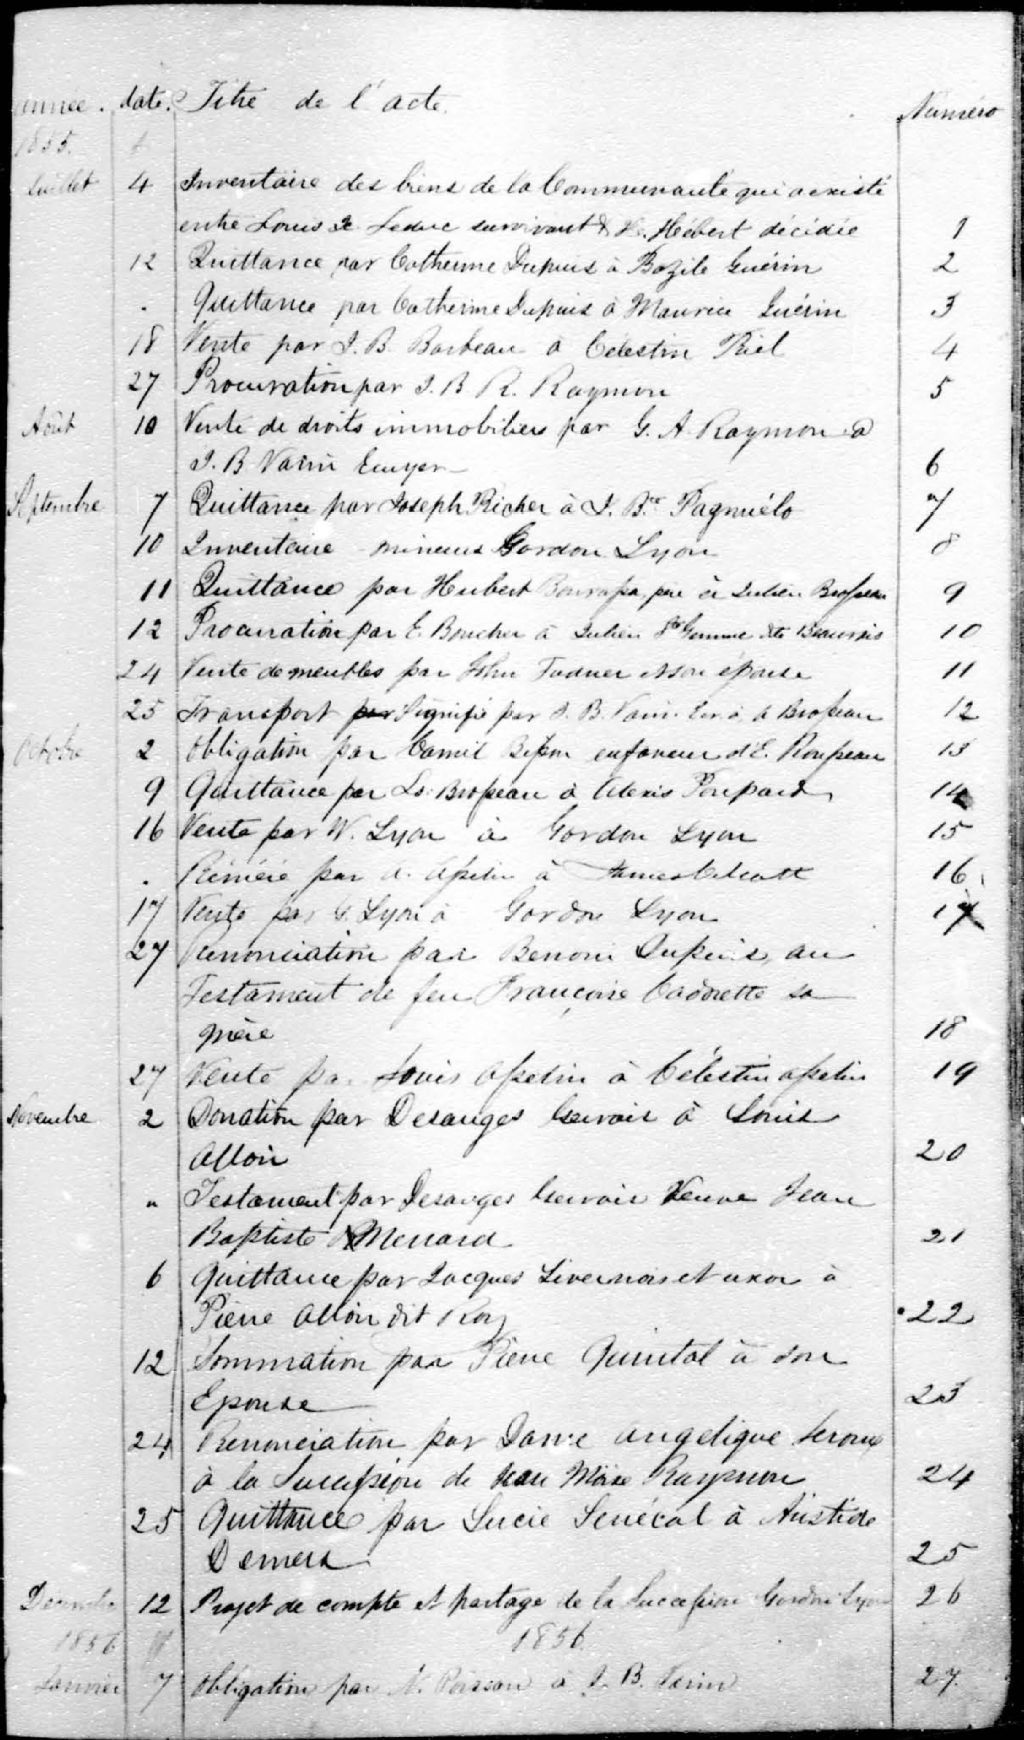 année. date. Titre de l'acte. Numéro
1855.
Juillet 4 Inventaire des biens de la Communauté qui a existé
entre Louis Leduc survivant & Hébert décédée 1
12 Quittance par Catherine Dupuis à Bazile Guérin 2
. Quittance par Catherine Dupuis à Maurice Guérin 3
18 Vente par J. B. Barbeau à Célestin Riel 4
27 Procuration par J. B. R. Raymon 5
Août 10 Vente de droits immobiliers par G. A. Raymon à
J. B. Varin Ecuyer 6
Septembre 7 Quittance par Joseph Richer à J. Bte Pagnuélo 7
10 Inventaire mineurs Gordon Lyon 8
11 Quittance par Hubert père à Julien Brosseau 9
12 Procuration par E. Boucher à Julien dit Beauvais 10
24 Vente de meubles par John et son épouse 11
25 Transport par signifié par J. B. Varin Brosseau 12
Octobre 2 Obligation par en faveur d'E. Rousseau 13
9 Quittance par Ls. Brosseau à Alexis Poupard 14
16 Vente par W. Lyon à Gordon Lyon 15
. Réméré par A. Asselin à James 16
17 Vente par G. Lyon à Gordon Lyon 17
27 Renonciation par Benoni Dupuis, au
Testament de feu Françoise Cadorette sa
mère 18
27 Vente par Louis Asselin à Célestin Asselin 19
Novembre 2 Donation par Desanges Gervais à Louis
Alloir 20
" Testament par Desanges Gervais Veuve Jean
Baptiste Menard 21
6 Quittance par Jacques Livernois et uxor à
Pierre Alloir dit Roy 22
12 Sommation par Pierre Quintal à son
Epouse 23
24 Renonciation par Dame Angelique Leroux
à la Succession de Moïse Raymon 24
25 Quittance par Lucie Senécal à Aristide
Demers 25
Décembre 12 Projet de compte et partage de la Succession Gordon Lyon 26
1856 1856
Janvier 7 Obligation par Poissan à J. B. Varin 27